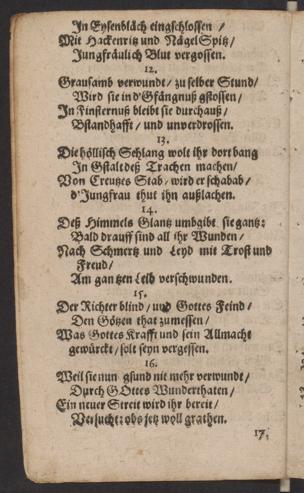 In Eysenbläch eingschlossen /
Mit Hackenritz und Nägel Spitz /
Jungfräulich Blut vergossen.
12.
Grausamb verwundt / zu selber Stund /
Wird sie in d'Gfängnuß gstossen /
In Finsternuß bleibt sie durchauß /
Bstandhafft / und unverdrossen.
13.
Die höllisch Schlang wolt ihr dort bang
In Gstalt deß Trachen machen /
Von Creutzes Stab / wird er schabab /
d'Jungfrau thut ihn außlachen.
14.
Deß Himmels Glantz umbgibt sie gantz:
Bald drauff sind all ihr Wunden /
Nach Schmertz und Leyd mit Trost und
Freud /
Am gantzen Leib verschwunden.
15.
Der Richter blind / und Gottes Feind /
Den Götzen that zumessen /
Was Gottes Krafft und sein Allmacht
gewürckt / solt seyn vergessen.
16.
Weil sie nun gsund nit mehr verwundt /
Durch GOttes Wunderthaten /
Ein neuer Streit wird ihr bereit /
Versucht: obs jetz woll grathen.
17.